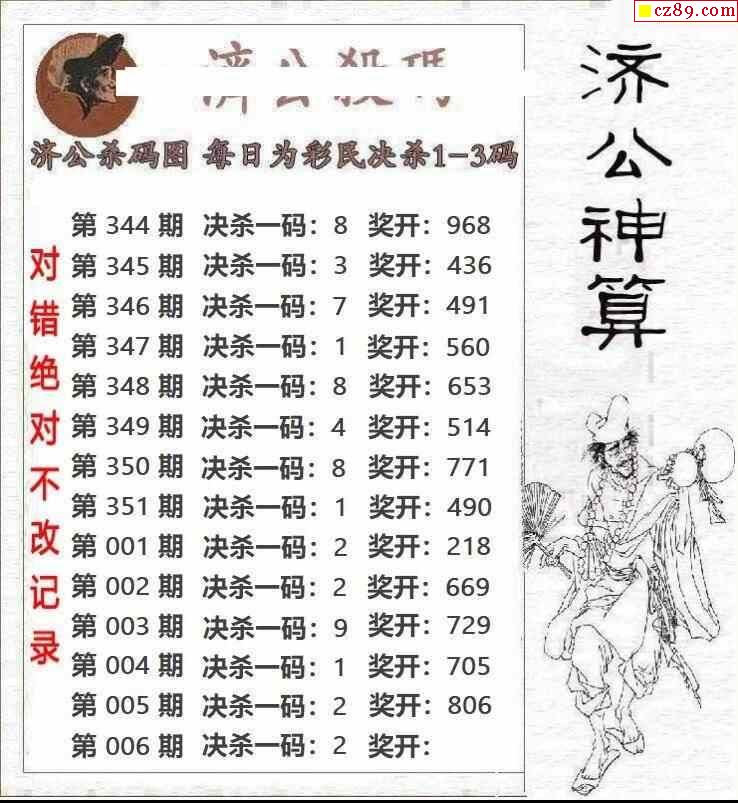 cz89.com
济公杀码图 每日为彩民决杀1-3码
第 344 期 决杀一码：8 奖开：968
第 345 期 决杀一码：3 奖开：436
第 346 期 决杀一码：7 奖开：491
第 347 期 决杀一码：1 奖开：560
第 348 期 决杀一码：8 奖开：653
第 349 期 决杀一码：4 奖开：514
第 350 期 决杀一码：8 奖开：771
第 351 期 决杀一码：1 奖开：490
第 001 期 决杀一码：2 奖开：218
第 002 期 决杀一码：2 奖开：669
第 003 期 决杀一码：9 奖开：729
第 004 期 决杀一码：1 奖开：705
第 005 期 决杀一码：2 奖开：806
第 006 期 决杀一码：2 奖开：
对错绝对不改记录
济公神算